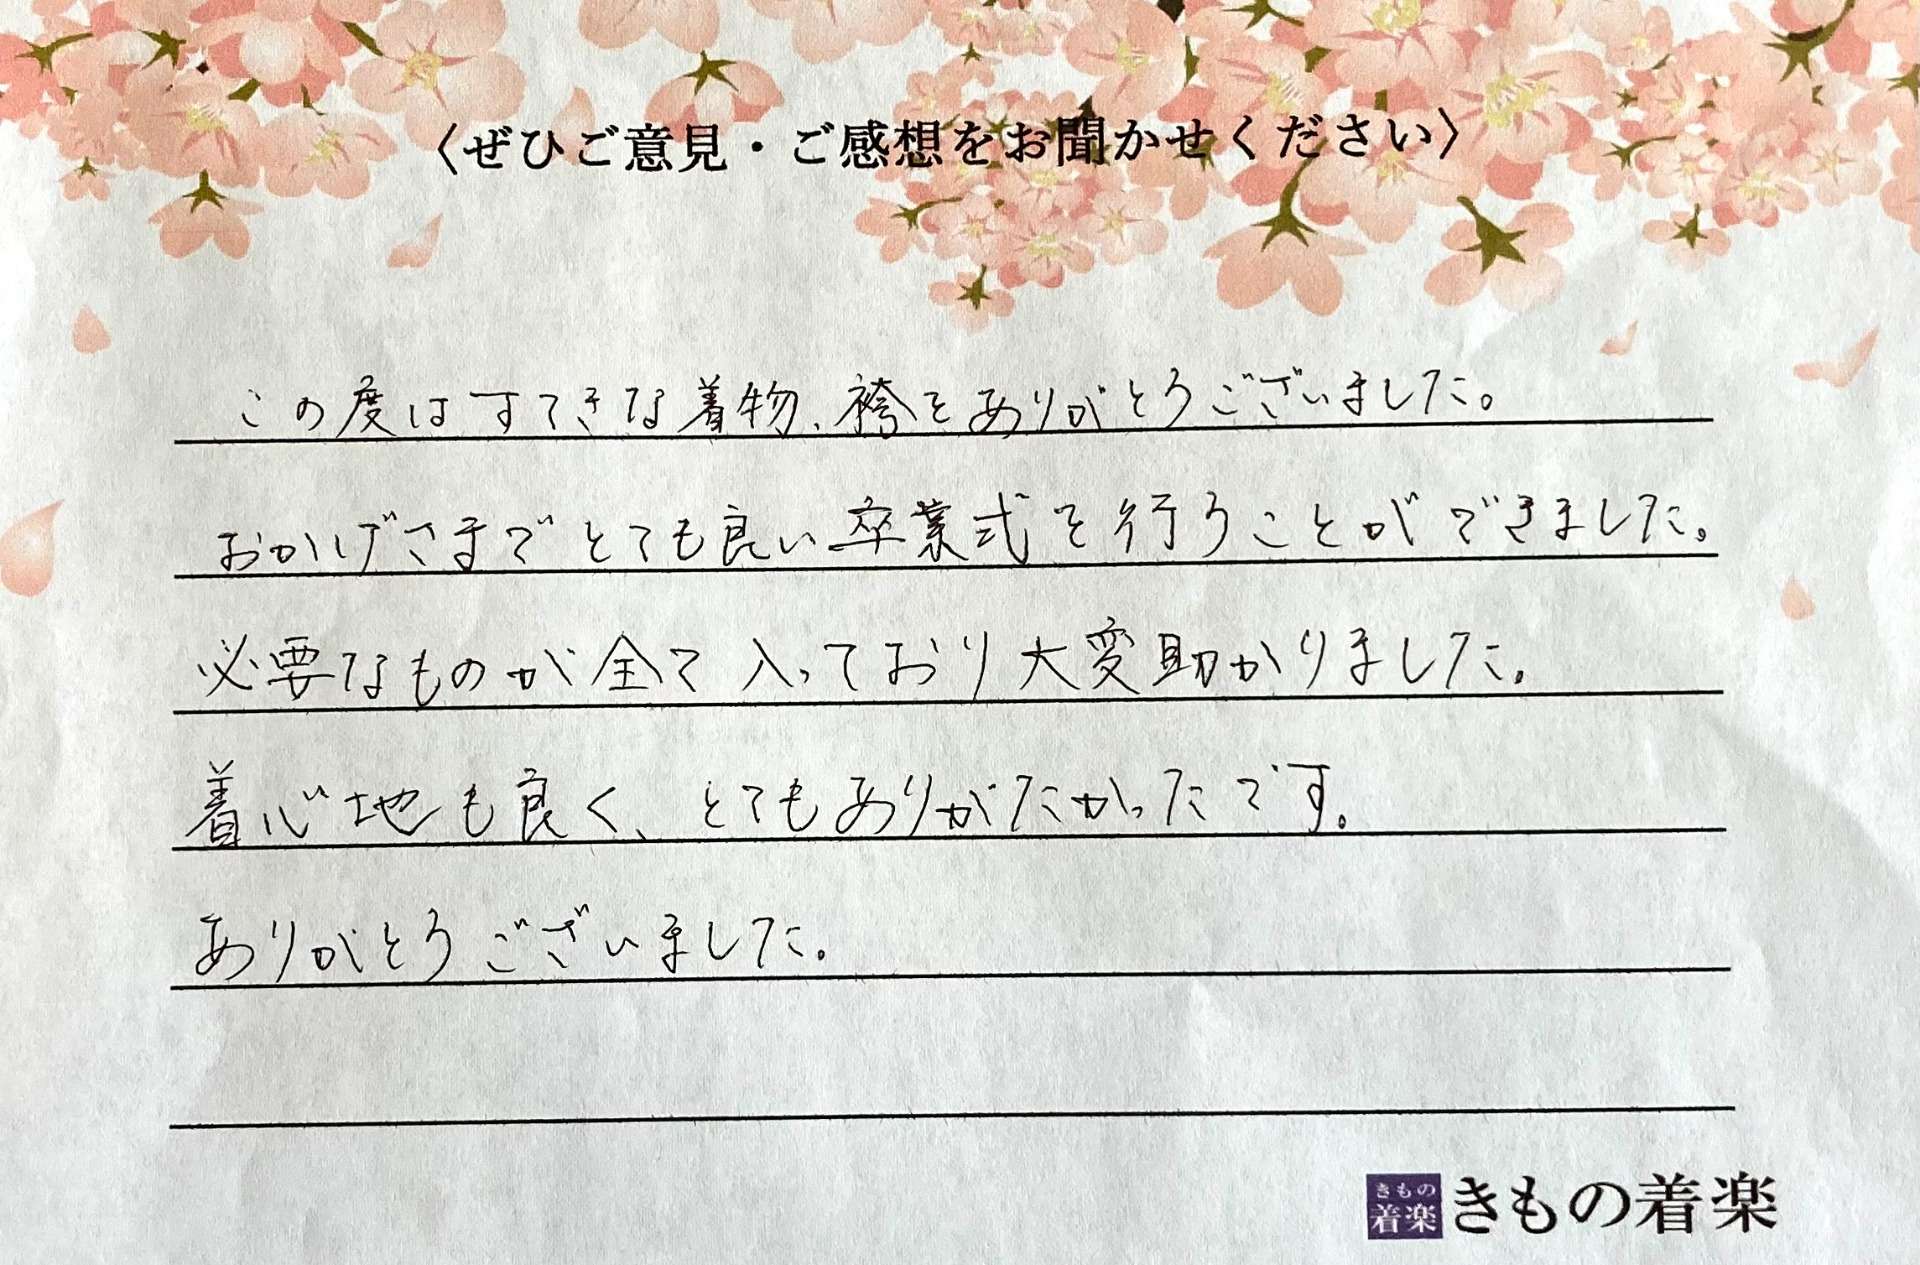 〈ぜひご意見・ご感想をお聞かせください〉
この度はすてきな着物、袴をありがとうございました。
おかげさまでとても良い卒業式を行うことができました。
必要なものが全て入っており大変助かりました。
着心地も良く、とてもありがたかったです。
ありがとうございました。
きもの
着楽
きもの着楽